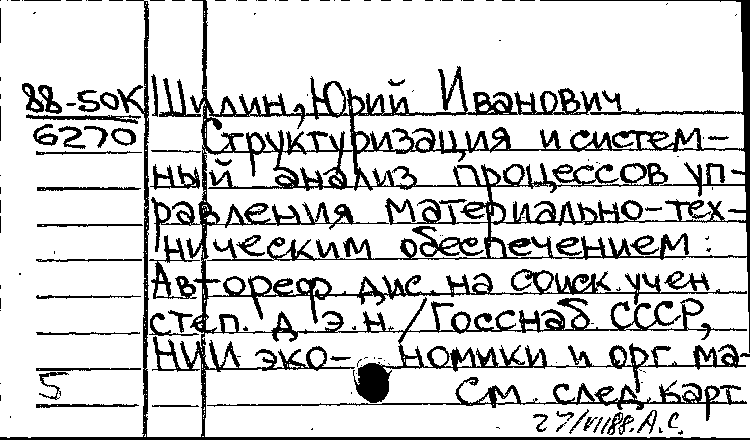 88-50К Шилин, Юрий Иванович.
6270 Структуризация и систем-
ный анализ процессов уп-
равления материально-тех-
ническим обеспечением:
Автореф. дис. на соиск. учен.
степ. д.э.н. / Госснаб СССР,
НИИ эко- номики и орг. ма-
5 См. след. карт.
27/VII88. А.С.